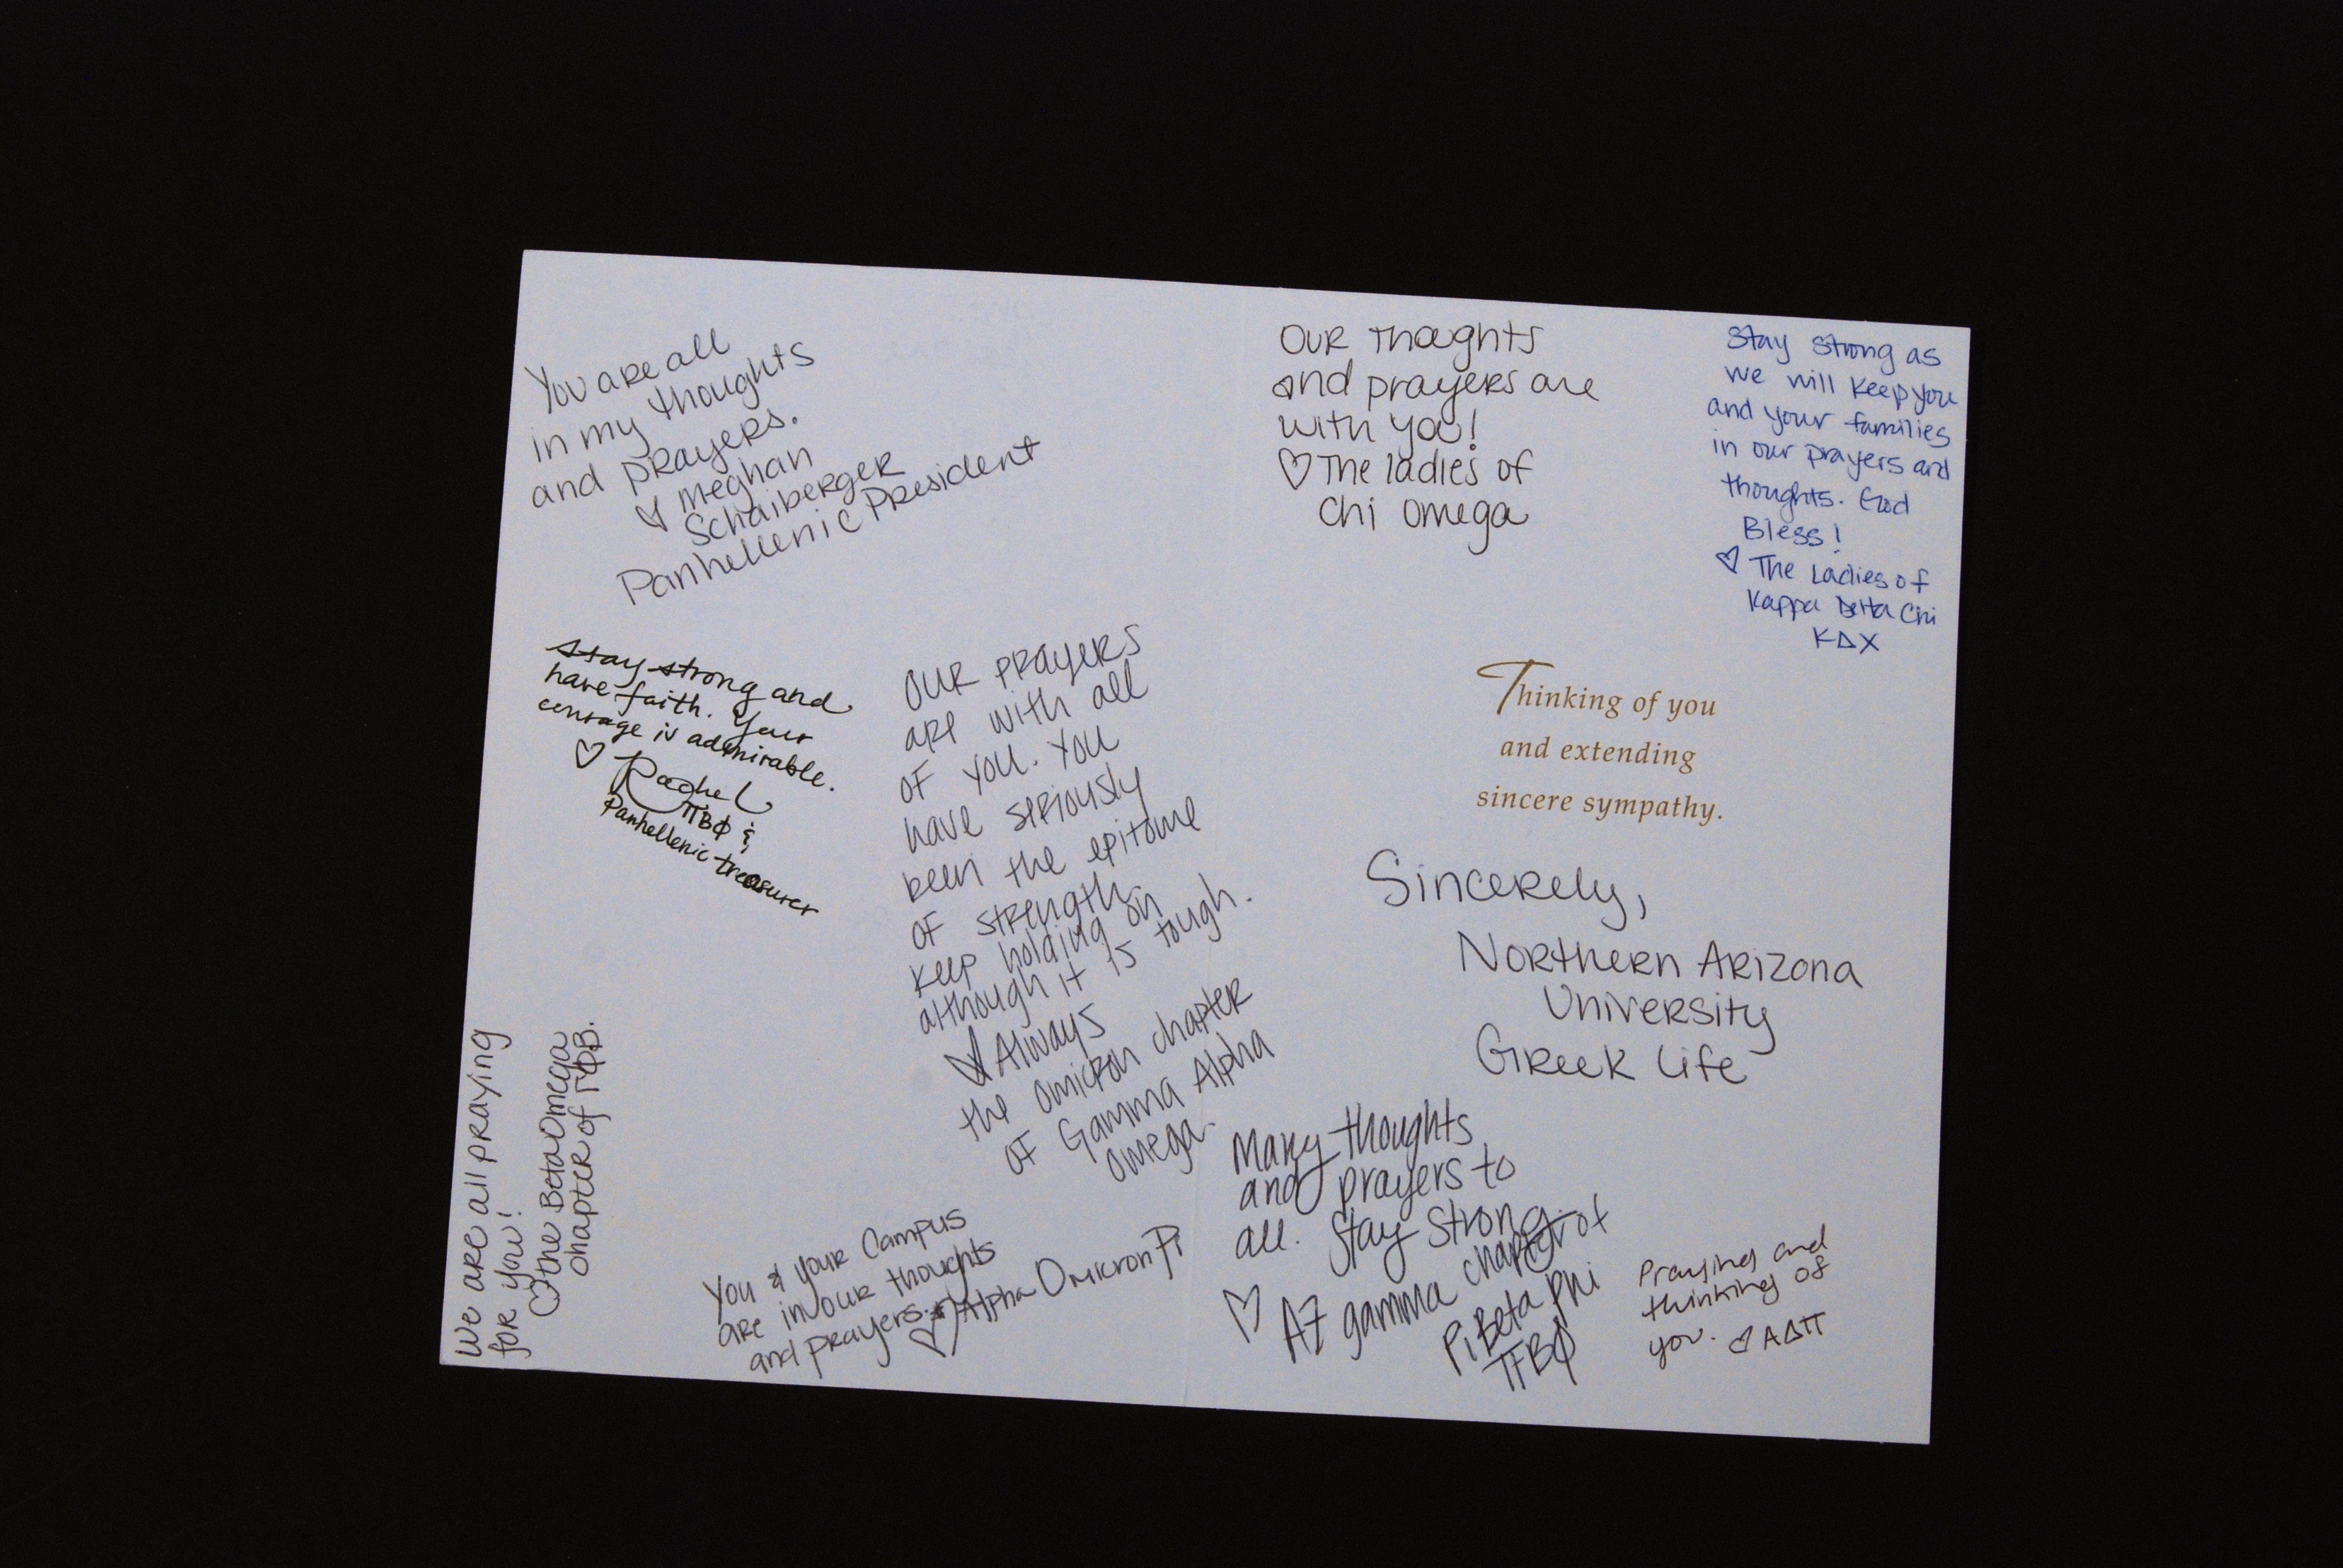 You are all
in my thoughts
and prayers.
♡ Meghan
Schaiberger
Panhellenic President
Stay strong and
have faith. Your
courage is admirable.
♡ Rachel
ΠΒΦ &
Panhellenic treasurer
Our prayers
are with all
of you. You
have seriously
been the epitome
of strength
keep holding on
although it is tough.
♡ Always
the Omicron chapter
of Gamma Alpha
Omega.
We are all praying
for you!
♡ the Beta Omega
chapter of ΓΦΒ.
You & your Campus
are in our thoughts
and prayers.
♡ Alpha Omicron Pi
Our thoughts
and prayers are
with you!
♡ The ladies of
Chi Omega
Stay strong as
we will keep you
and your families
in our prayers and
thoughts. God
Bless!
♡ The Ladies of
Kappa Delta Chi
ΚΔΧ
Thinking of you
and extending
sincere sympathy.
Sincerely,
Northern Arizona
University
Greek Life
Many thoughts
and prayers to
all. Stay Strong
♡ AZ gamma chapter of
Pi Beta Phi
ΠΒΦ
Praying and
thinking of
you. ♡ ΑΔΠ